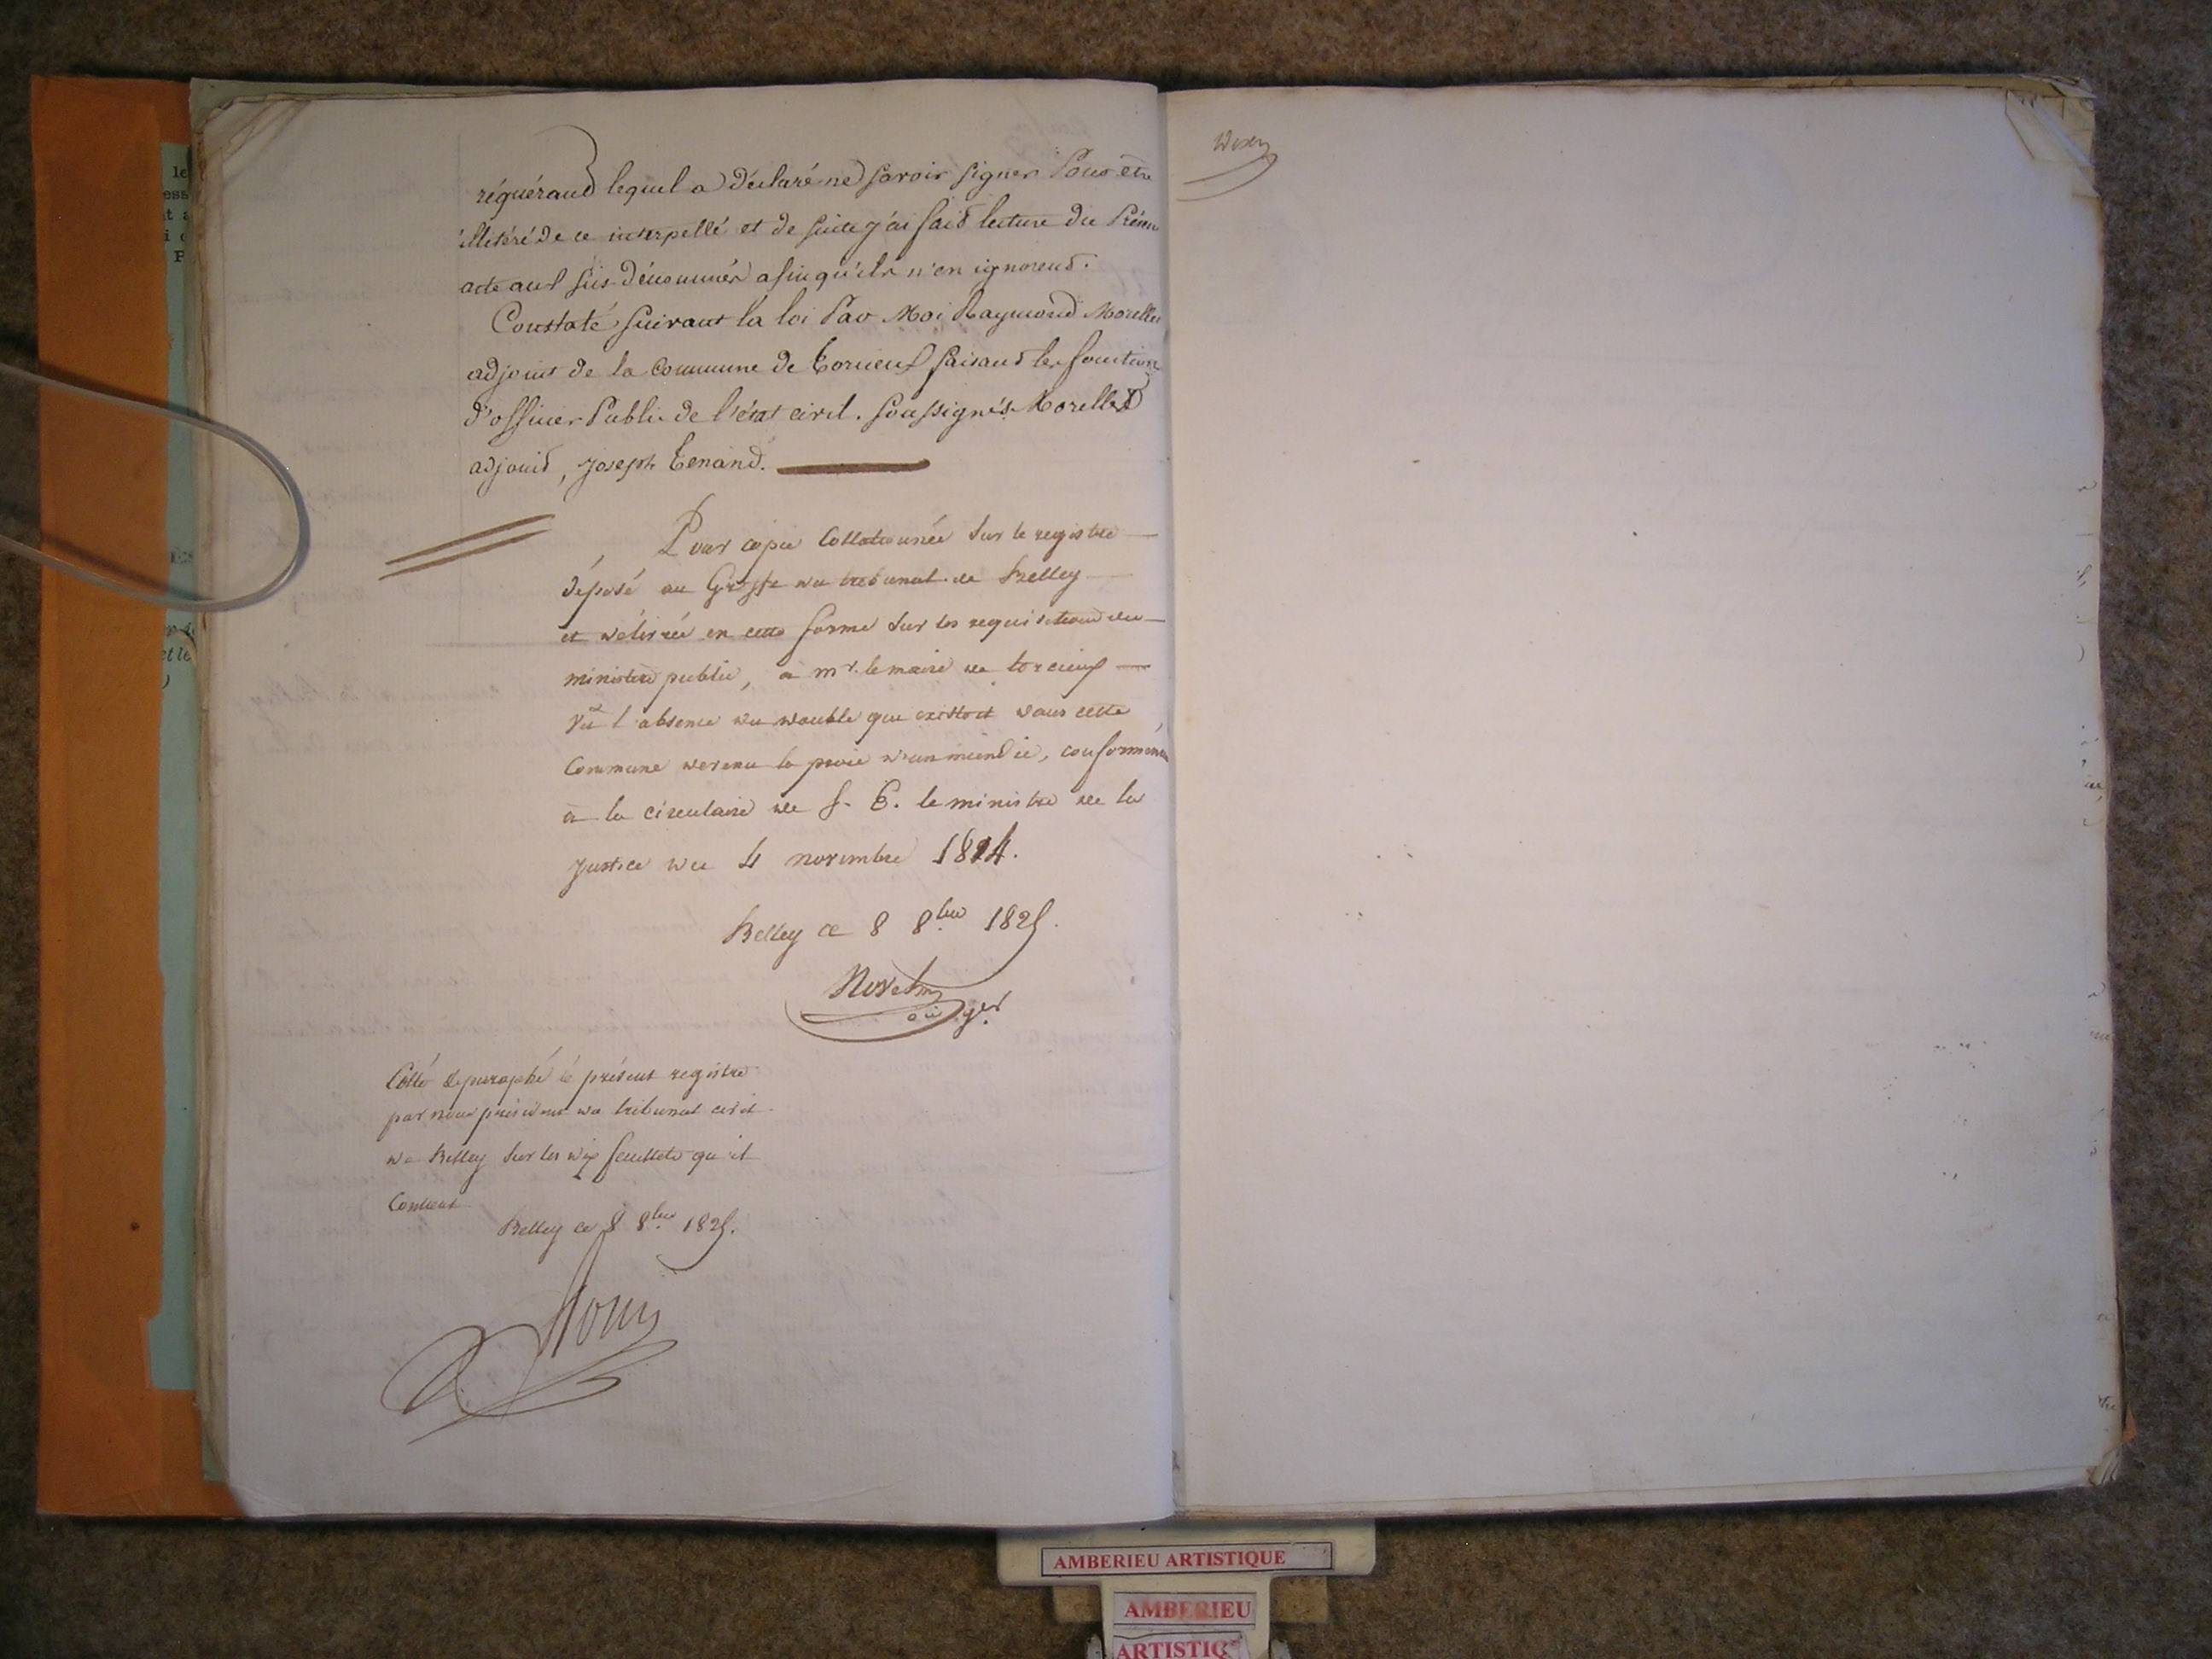 réquérand lequel a déclaré ne savoir signer Pour être
illitéré de ce interpellé et de suite j'ai faid lecture du
acte aux sus-dénommés afin qu'ils n'en ignorend.
Constaté suivant la loi Par Moi Raymond Morellet
adjoint de la Commune de Torcieux faisand les fonction
d'officier Public de l'état civil. soussignés Morellet
adjoind, Joseph Tenand.
Pour copie Collationnée sur le registre
déposé au Greffe du tribunal de Belley
et délivrée en cette forme sur les requisitions du
ministère public, a mr. le maire de torcieux
Vû l'absence du double qui existoit dans cette
Commune devenu la proie d'un incendie, conformément
a la circulaire de S. E. le ministre de la
Justice du 4 novembre 1814.
Belley ce 8 8bre 1825.
ger
Cotté & paraphé le présent registre
par nous président du tribunal civil
de Belley sur les dix feuillets qu'il
Contient
Belley ce 8 8bre 1825.
AMBERIEU ARTISTIQUE
AMBERIEU
ARTISTIQ